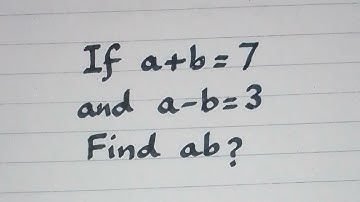 If a+b=7
and a-b=3
Find ab?